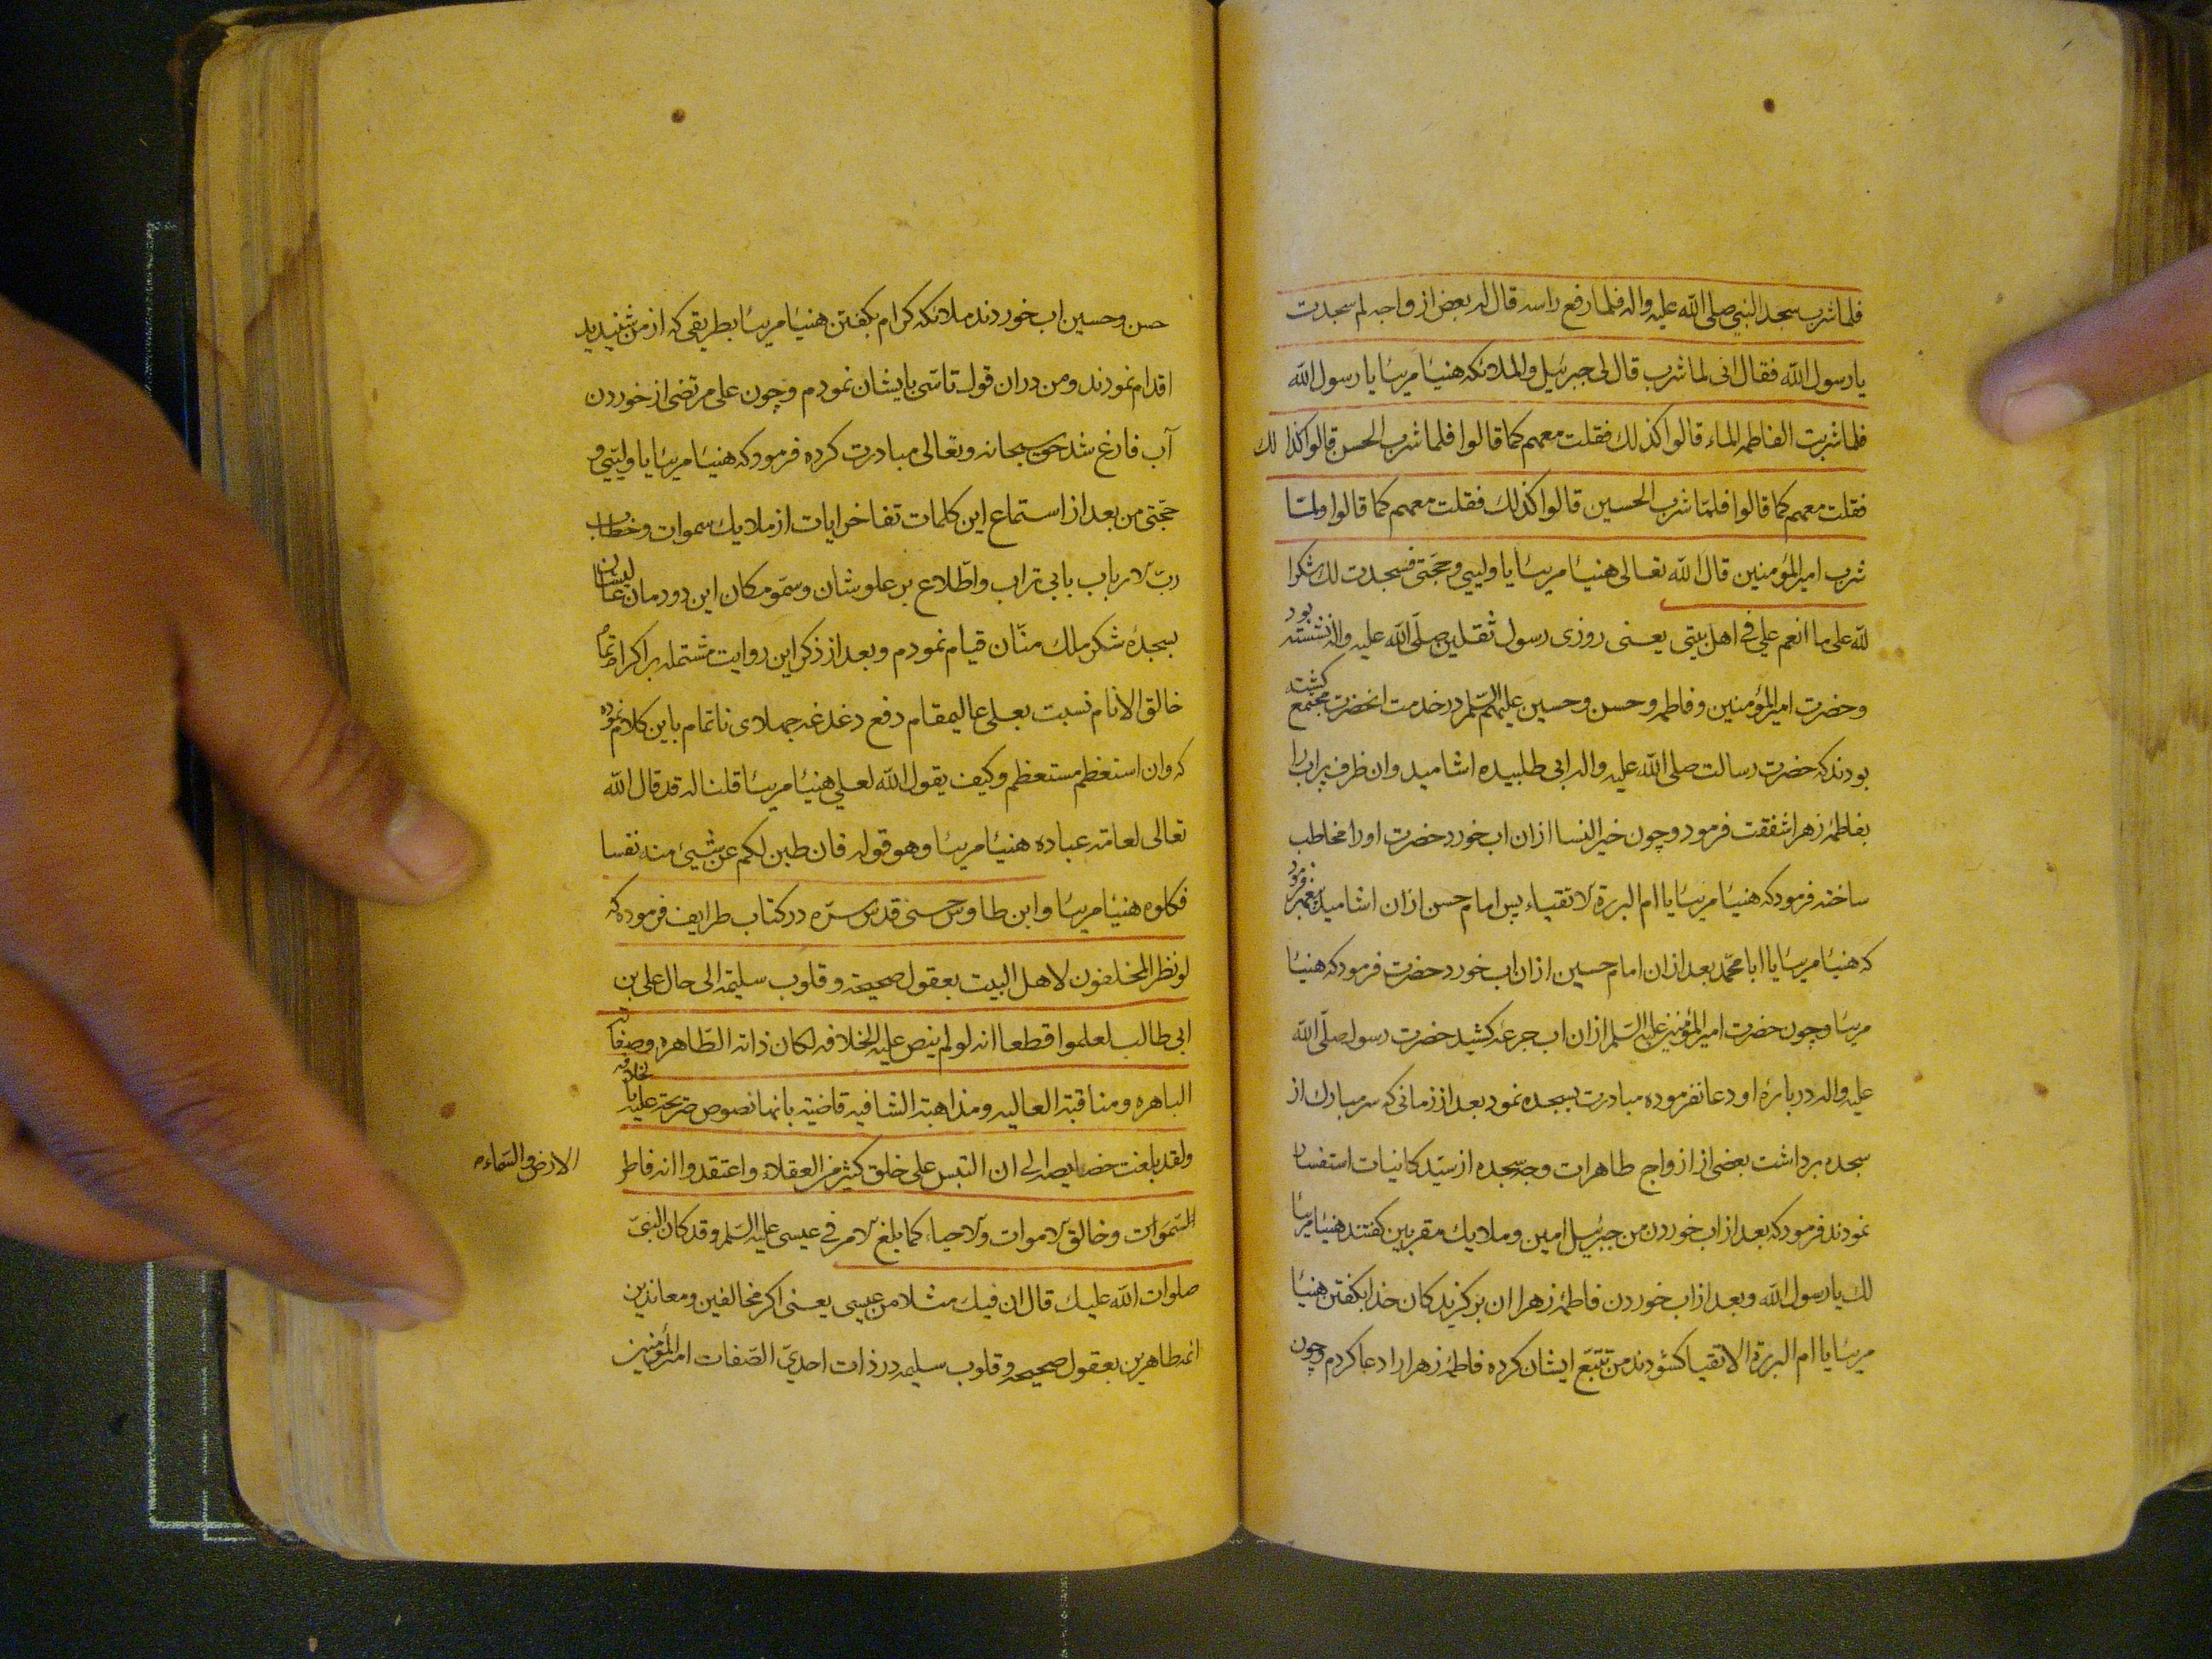 فلما شرب سجد النبی صلی الله علیه واله فلما رفع راسه قال له بعض ازواجه لم سجدت
یا رسول الله فقال انی لما شرب قال لی جبرئیل والملائکه هنیئا مریئا یا رسول الله
فلما شربت الفاطمه الماء قالوا کذلك فقلت معهم کما قالوا فلما شرب الحسن قالوا کذا لك
فقلت معهم کما قالوا فلما شرب الحسین قالوا کذلك فقلت معهم کما قالوا ولما
شرب امیر المؤمنین قال الله تعالی هنیئا مریئا یا ولیی وحجتی فسجدت لك شکرا
لله علی ما انعم علی فی اهل بیتی یعنی روزی رسول ثقلین صلی الله علیه واله نشسته بود
وحضرت امیر المؤمنین وفاطمه وحسن وحسین علیهم السلم در خدمت انحضرت مجتمع کشته
بودند که حضرت رسالت صلی الله علیه واله ابی طلبیده اشامید وان ظرف پر اب را
بفاطمۀ زهرا شفقت فرمود وچون خیر النسا ازان اب خورد حضرت اورا مخاطب
ساخته فرمود که هنیئا مریئا یا ام البررة الاتقیاء پس امام حسن ازان اشامید پیغمبر فرمود
که هنیئا مریئا یا ابا محمد بعد ازان امام حسین ازان اب خورد حضرت فرمود که هنیئا
مریئا وچون حضرت امیر المؤمنین علیه السلم ازان اب جرعه کشید حضرت رسول صلی الله
علیه واله در بارۀ او دعا نفرموده مبادرت بسجده نمود بعد از زمانی که سر مبارك از
سجده برداشت بعضی از ازواج طاهرات وجه سجده از سید کاینات استفسار
نمودند فرمود که بعد از اب خوردن من جبرئیل امین وملایك مقربین کفتند هنیئا مریئا
لك یا رسول الله وبعد از اب خوردن فاطمۀ زهرا ان برکزیدکان خدا بکفتن هنیئا
مریئا یا ام البررة الاتقیا کشودند من تتبع ایشان کرده فاطمۀ زهرا را دعا کردم وچون
حسن وحسین اب خوردند ملائکه کرام بکفتن هنیئا مریئا بطریقی که از من شنیدید
اقدام نمودند ومن دران قول تاسی بایشان نمودم وچون علی مرتضی از خوردن
آب فارغ شد حق سبحانه وتعالی مبادرت کرده فرمود که هنیئا مریئا یا ولیی و
حجتی من بعد از استماع این کلمات تفاخر ایات از ملایك سموات وخطاب
رب الارباب بابی تراب واطلاع بر علو شان وسمو مکان این دودمان عالیشان
بسجدۀ شکر ملك منان قیام نمودم وبعد از ذکر این روایت مشتمله بر اکرام تمام
خالق الانام نسبت بعلی عالیمقام دفع دغدغه جهلای ناتمام باین کلام نموده
که وان استعظم مستعظم وکیف یقول الله لعلی هنیئا مریئا قلنا له قد قال الله
تعالی لعامة عباده هنیئا مریئا وهو قوله فان طبن لکم عن شیئ منه نفسا
فکلوه هنیئا مریئا وابن طاوس حسنی قدس سره در کتاب طرایف فرموده که
لو نظر المخلفون لاهل البیت بعقول صحیحة وقلوب سلیمة الی حال علی بن
ابی طالب لعلموا قطعا انه لو لم ینص علیه الخلافه لکان ذاته الطاهره وصفاته
الباهره ومناقبته العالیه ومذاهبته الشافیه قاضیة بانها نصوص صریحة علیه بالخلافه
ولقد بلغت خصایصه الی ان التبس علی خلق کثیر من العقلاء واعتقدوا انه فاطر
الارض والسماء
السموات وخالق الاموات والاحیاء کما بلغ الامر فی عیسی علیه السلم وقد کان النبی
صلوات الله علیك قال ان فیك مثلا من عیسی یعنی اکر مخالفین ومعاندین
ائمه طاهرین بعقول صحیحه وقلوب سلیمه در ذات احدی الصفات امیر المؤمنین